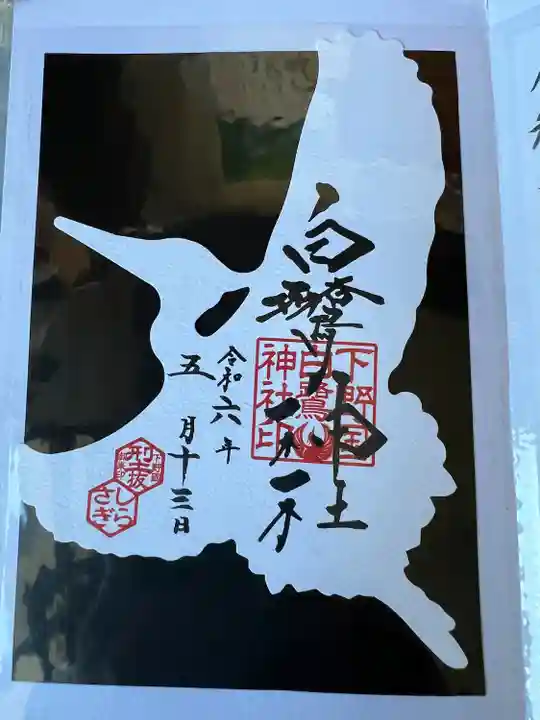 白鷺神社
下野国
白鷺
神社印
令和六年
五月十三日
しら
さぎ